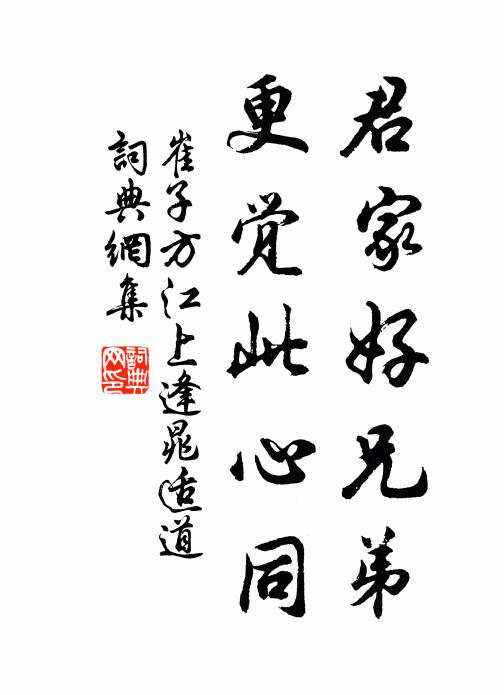 君家好兄弟
更觉此心同
崔子方江上逢晁适道
詞典網集
詞典
网印